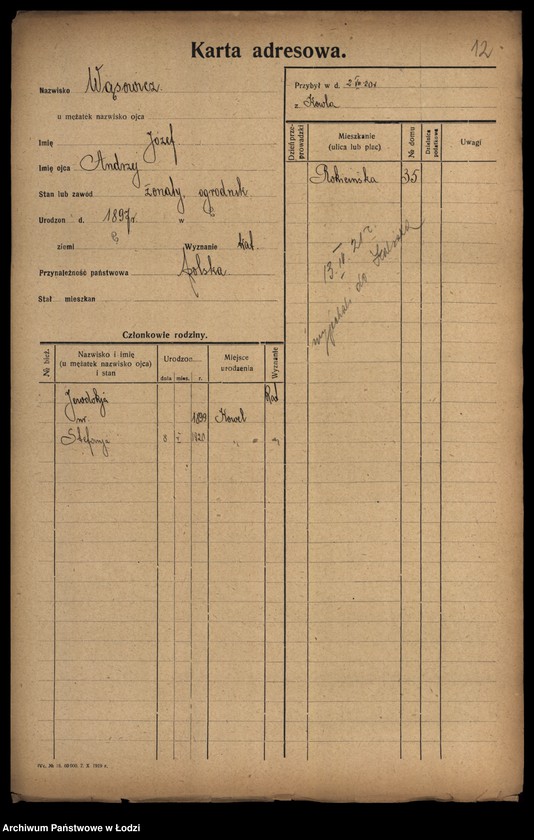 12
Karta adresowa.
Nazwisko Wąsowicz
u mężatek nazwisko ojca
Imię Józef
Imię ojca Andrzej
Stan lub zawód żonaty, ogrodnik
Urodzon d. 1897 r. w
ziemi Wyznanie kat
Przynależność państwowa polska
Stał mieszkan
Przybył w d.
z Kowla
Dzień przeprowadzki
Mieszkanie
(ulica lub plac)
№ domu
Dzielnica podatkowa
Uwagi
Rokicińska 35
13 IV 21 r.
do
Członkowie rodziny.
№ bież.
Nazwisko i imię
(u mężatek nazwisko ojca)
i stan
Urodzon....
data mies. r.
Miejsce
urodzenia
Wyznanie
Jewdokja
1899 Kowel
Stefanja 8 1920 „ „ „
7. X. 1920 r.
Archiwum Państwowe w Łodzi